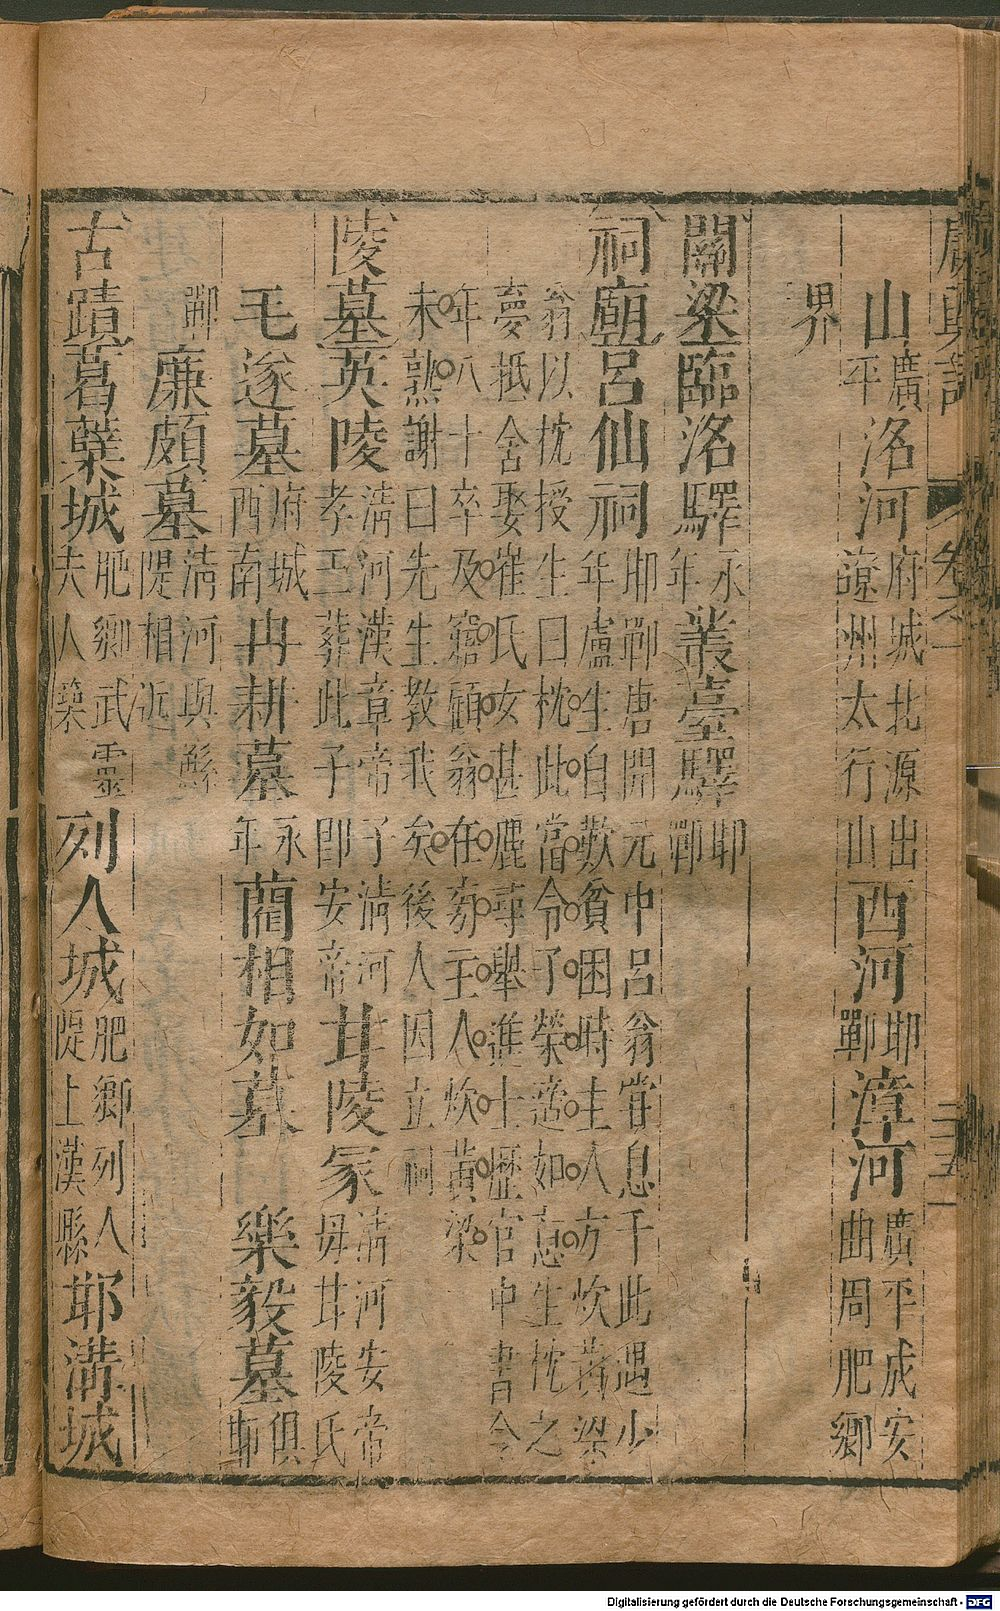 廣輿記 卷之一
山廣平洺河府城北源出遼州太行山西河邯鄲漳河廣平成安曲周肥鄉
界
關梁臨洺驛永年叢臺驛邯鄲
祠廟呂仙祠邯鄲唐開元中呂翁嘗息于此遇少年盧生自歎貧困時主人方炊黃梁
翁以枕授生曰枕此當令子榮適如意生枕之夢抵舍娶崔氏女甚麗尋舉進士歷官中書令
年八十卒及寤顧翁在旁主人炊黃梁未熟謝曰先生教我矣後人因立祠
陵墓英陵清河漢章帝子清河孝王葬此子卽安帝甘陵冢清河安帝母甘陵氏
毛遂墓府城西南冉耕墓永年藺相如墓 樂毅墓俱邯
鄲廉頗墓清河與縣隄相近
古蹟葛孽城肥鄉武靈夫人築列人城肥鄉列人隄上漢縣邯溝城
Digitalisierung gefördert durch die Deutsche Forschungsgemeinschaft - DFG